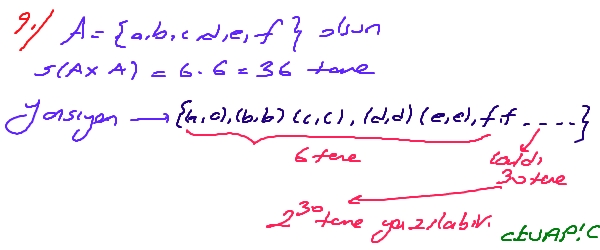 9./ A = {a,b,c,d,e,f} olsun
s(AxA) = 6.6 = 36 tane
Yansıyan → {(a,a),(b,b)(c,c),(d,d)(e,e),f,f.....}
6 tane kaldı
30 tane
2^30 tane yazılabilir.
CEVAP:C